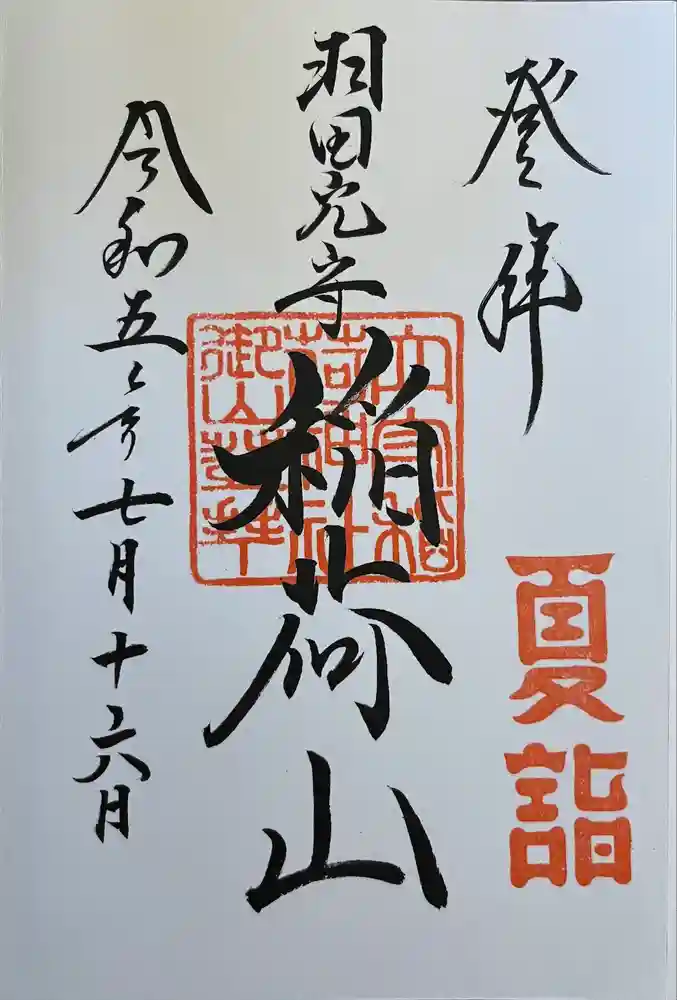 登拝
夏詣
羽田穴守
稲荷山
穴守稲
荷神社
御山登拝
令和五年七月十六日